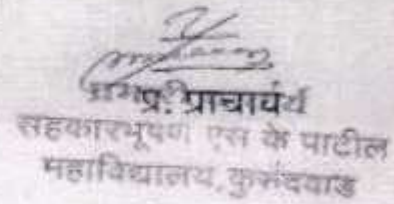 प्र. प्राचार्य
सहकारभूषण एस के पाटील
महाविद्यालय, कुरुंदवाड